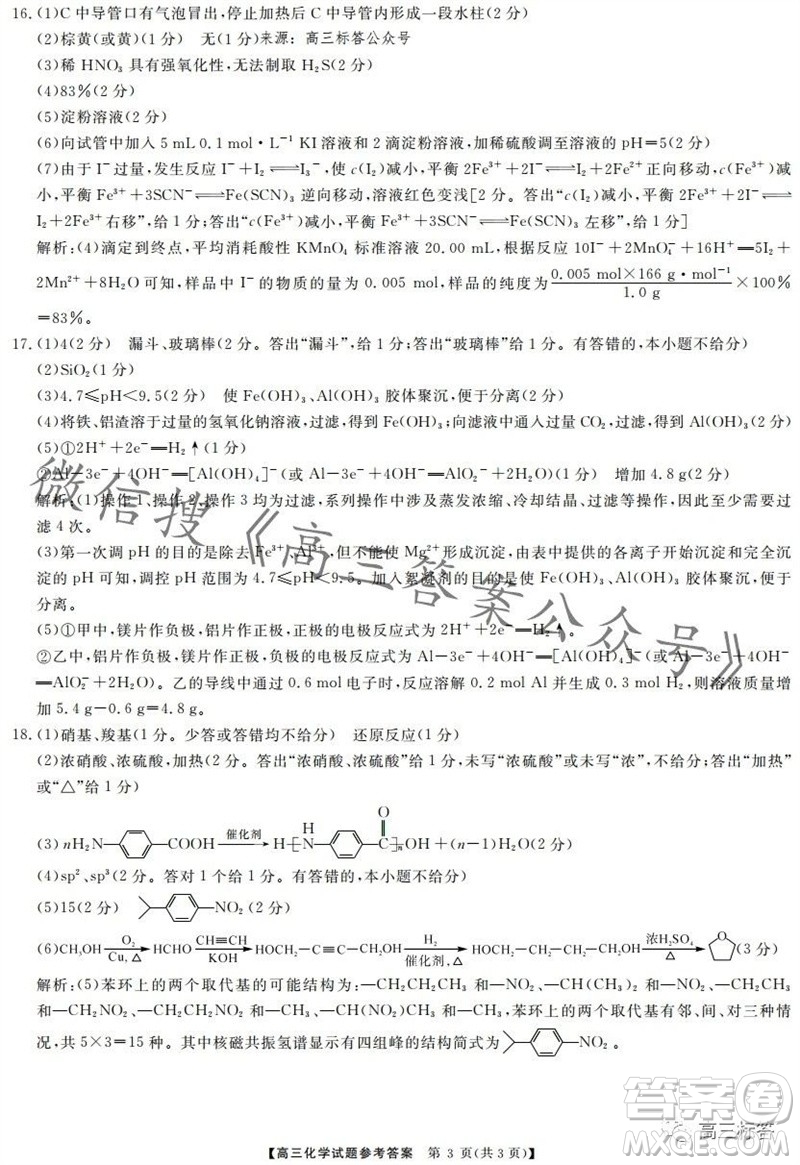 16. (1)C 中导管口有气泡冒出,停止加热后 C 中导管内形成一段水柱(2 分)
(2)棕黄(或黄)(1 分)　无(1 分)来源：高三标答公众号
(3)稀 HNO₃ 具有强氧化性,无法制取 H₂S(2 分)
(4)83%(2 分)
(5)淀粉溶液(2 分)
(6)向试管中加入 5 mL 0.1 mol·L⁻¹ KI 溶液和 2 滴淀粉溶液,加稀硫酸调至溶液的 pH=5(2 分)
(7)由于 I⁻过量,发生反应 I⁻+I₂⇌I₃⁻,使 c(I₂)减小,平衡 2Fe³⁺+2I⁻⇌I₂+2Fe²⁺正向移动,溶液中
c(Fe³⁺)减小,平衡 Fe³⁺+3SCN⁻⇌Fe(SCN)₃ 逆向移动,溶液红色变浅[2 分。答出“c(I₂)减小,平衡 2I⁻+2Fe³⁺⇌
I₂+2Fe²⁺右移”,给 1 分;答出“c(Fe³⁺)减小,平衡 Fe³⁺+3SCN⁻⇌Fe(SCN)₃ 左移”,给 1 分]
解析:(4)滴定到终点,平均消耗酸性 KMnO₄ 标准溶液 20.00 mL,根据反应 10I⁻+2MnO₄⁻+16H⁺═5I₂+
2Mn²⁺+8H₂O 可知,样品中 I⁻的物质的量为 0.005 mol,样品的纯度为 (0.005 mol×166 g·mol⁻¹)/(1.0 g) ×100%
=83%。
17. (1)4(2 分)　漏斗、玻璃棒(2 分。答出“漏斗”,给 1 分;答出“玻璃棒”给 1 分。有答错的,本小题不给分)
(2)SiO₂(1 分)
(3)4.7≤pH<9.5(2 分)　使 Fe(OH)₃、Al(OH)₃ 胶体聚沉,便于分离(2 分)
(4)将铁、铝渣溶于过量的氢氧化钠溶液,过滤,得到 Fe(OH)₃;向滤液中通入过量 CO₂,过滤,得到 Al(OH)₃(2 分)
(5)①2H⁺+2e⁻═H₂↑(1 分)
②Al-3e⁻+4OH⁻═[Al(OH)₄]⁻(或 Al-3e⁻+4OH⁻═AlO₂⁻+2H₂O)(1 分)　增加 4.8 g(2 分)
解析:(1)操作 1、操作 2、操作 3 均为过滤,系列操作中涉及蒸发浓缩、冷却结晶、过滤等操作,因此至少需要过
滤 4 次。
(3)第一次调 pH 的目的是除去 Fe³⁺、Al³⁺,但不能使 Mg²⁺形成沉淀,由表中提供的各离子开始沉淀和完全沉
淀的 pH 可知,调控 pH 范围为 4.7≤pH<9.5。加入絮凝剂的目的是使 Fe(OH)₃、Al(OH)₃ 胶体聚沉,便于
分离。
(5)①甲中,镁片作负极,铝片作正极,正极的电极反应式为 2H⁺+2e⁻═H₂↑。
②乙中,铝片作负极,镁片作正极,负极的电极反应式为 Al-3e⁻+4OH⁻═[Al(OH)₄]⁻(或 Al-3e⁻+4OH⁻═
AlO₂⁻+2H₂O)。乙的导线中通过 0.6 mol 电子时,反应溶解 0.2 mol Al 并生成 0.6 g H₂,则溶液质量增加
5.4 g-0.6 g=4.8 g。
18. (1)硝基、羧基(1 分。少答或答错均不给分)　还原反应(1 分)
(2)浓硝酸、浓硫酸,加热(2 分。答出“浓硝酸、浓硫酸”给 1 分,未写“浓硫酸”或未写“浓”,不给分;答出“加热”
或“△”给 1 分)
(3) nH₂N COOH 催化剂 H [ N H C O ]ₙ OH +(n-1)H₂O(2 分)
(4)sp²、sp³(2 分。答对 1 个给 1 分。有答错的,本小题不给分)
(5)15(2 分) NO₂(2 分)
(6)CH₃OH O₂ Cu,△ HCHO CH≡CH KOH HOCH₂ CH₂OH H₂ 催化剂,△ HOCH₂ CH₂OH 浓H₂SO₄ △ O (3 分)
解析:(5)苯环上的两个取代基的可能结构为:—CH₂CH₂CH₃ 和—NO₂、—CH(CH₃)₂ 和—NO₂、—CH₂CH₃
和—CH₂NO₂、—CH₂CH₂NO₂ 和—CH₃、—CH(NO₂)CH₃ 和—CH₃,苯环上的两个取代基有邻、间、对三种情
况,共 5×3=15 种。其中核磁共振氢谱显示有四组峰的结构简式为 NO₂。
【高三化学试题参考答案　第 3 页(共 3 页)】
微信搜《高三答案公众号》
高三标答
答案圈
MXQE.COM